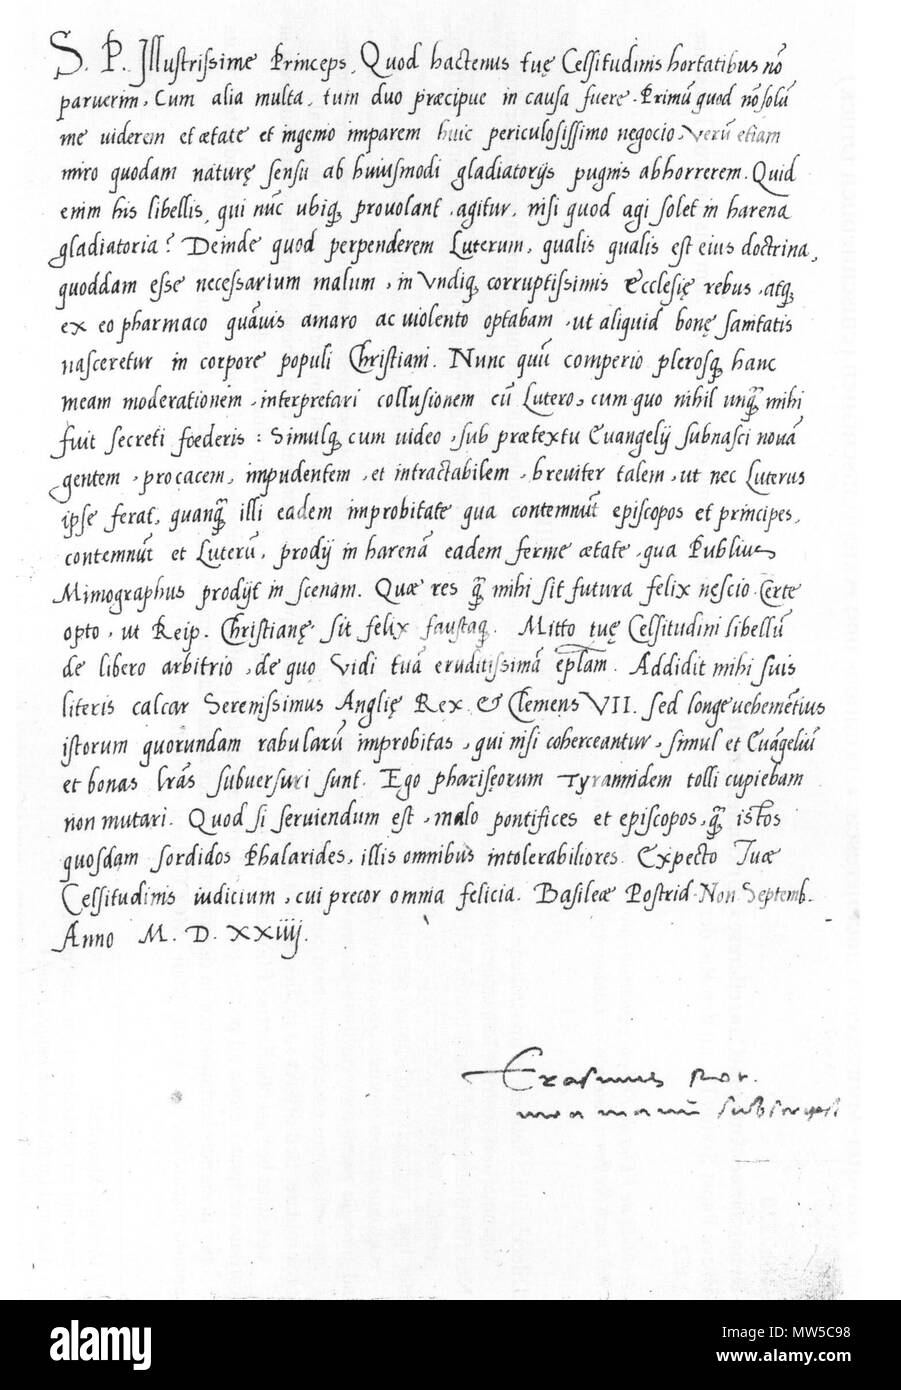 S. P. Illustrissime Princeps, Quod hactenus tuę Celsitudinis hortatibus nō
paruerim, Cum alia multa, tum duo præcipue in causa fuere. Primū quod nō solū
me uiderem et ætate et ingenio imparem huic periculosissimo negocio, Verū etiam
miro quodam naturę sensu ab huiusmodi gladiatorijs pugnis abhorrerem. Quid
enim his libellis, qui nūc ubiqȝ prouolant, agitur, nisi quod agi solet in harena
gladiatoria? Deinde quod perpenderem Luterum, qualis qualis est eius doctrina,
quoddam esse necessarium malum, in Vndiqȝ corruptissimis Ecclesię rebus, atqȝ
ex eo pharmaco quāuis amaro ac uiolento optabam, ut aliquid bonę sanitatis
nasceretur in corpore populi Christiani. Nunc quū comperio plerosqȝ hanc
meam moderationem, interpretari collusionem cū Lutero, cum quo nihil unqȝ mihi
fuit secreti foederis: Simulqȝ cum uideo, sub prætextu Euangelij subnasci nouā
gentem, procacem, impudentem, et intractabilem, breuiter talem, ut nec Luterus
ipse ferat, quanqȝ illi eadem improbitate qua contemnūt episcopos et principes,
contemnūt et Luterū, prodij in harenā eadem ferme ætate, qua Publius
Mimographus prodijt in scenam. Quæ res qȝ mihi sit futura felix nescio. Certe
opto, ut Reip. Christianę sit felix faustaqȝ. Mitto tuę Celsitudini libellū
de libero arbitrio, de quo Vidi tuā eruditissimā eplam. Addidit mihi suis
literis calcar Serenissimus Anglię Rex & Clemens VII. sed longe uehemētius
istorum quorundam rabularū improbitas, qui nisi coherceantur, simul et Euāgeliū
et bonas lrās subuersuri sunt. Ego pharisęorum Tyrannidem tolli cupiebam
non mutari. Quod si seruiendum est, malo pontifices et episcopos, qȝ istos
quosdam sordidos Phalarides, illis omnibus intolerabiliores. Expecto Tuæ
Celsitudinis iudicium, cui precor omnia felicia. Basileæ Postrid. Non Septemb.
Anno M. D. XXiiij.
Erasmus Rot.
mea manū subscripsi
alamy
Image ID: MW5C98
www.alamy.com